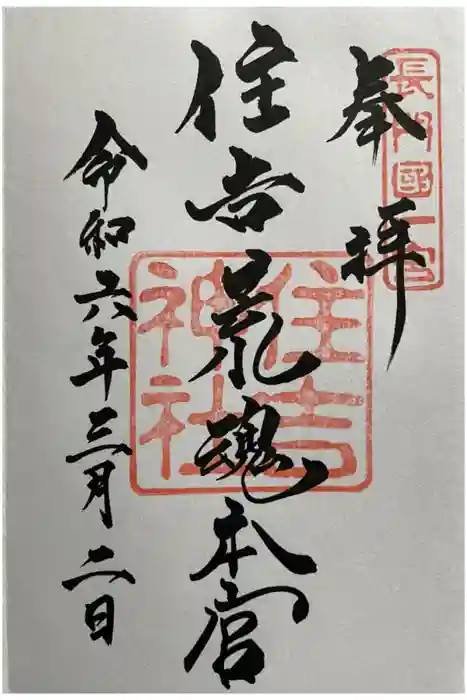 奉拝
長門國一宮
住吉荒魂本宮
住吉神社
令和六年三月二日